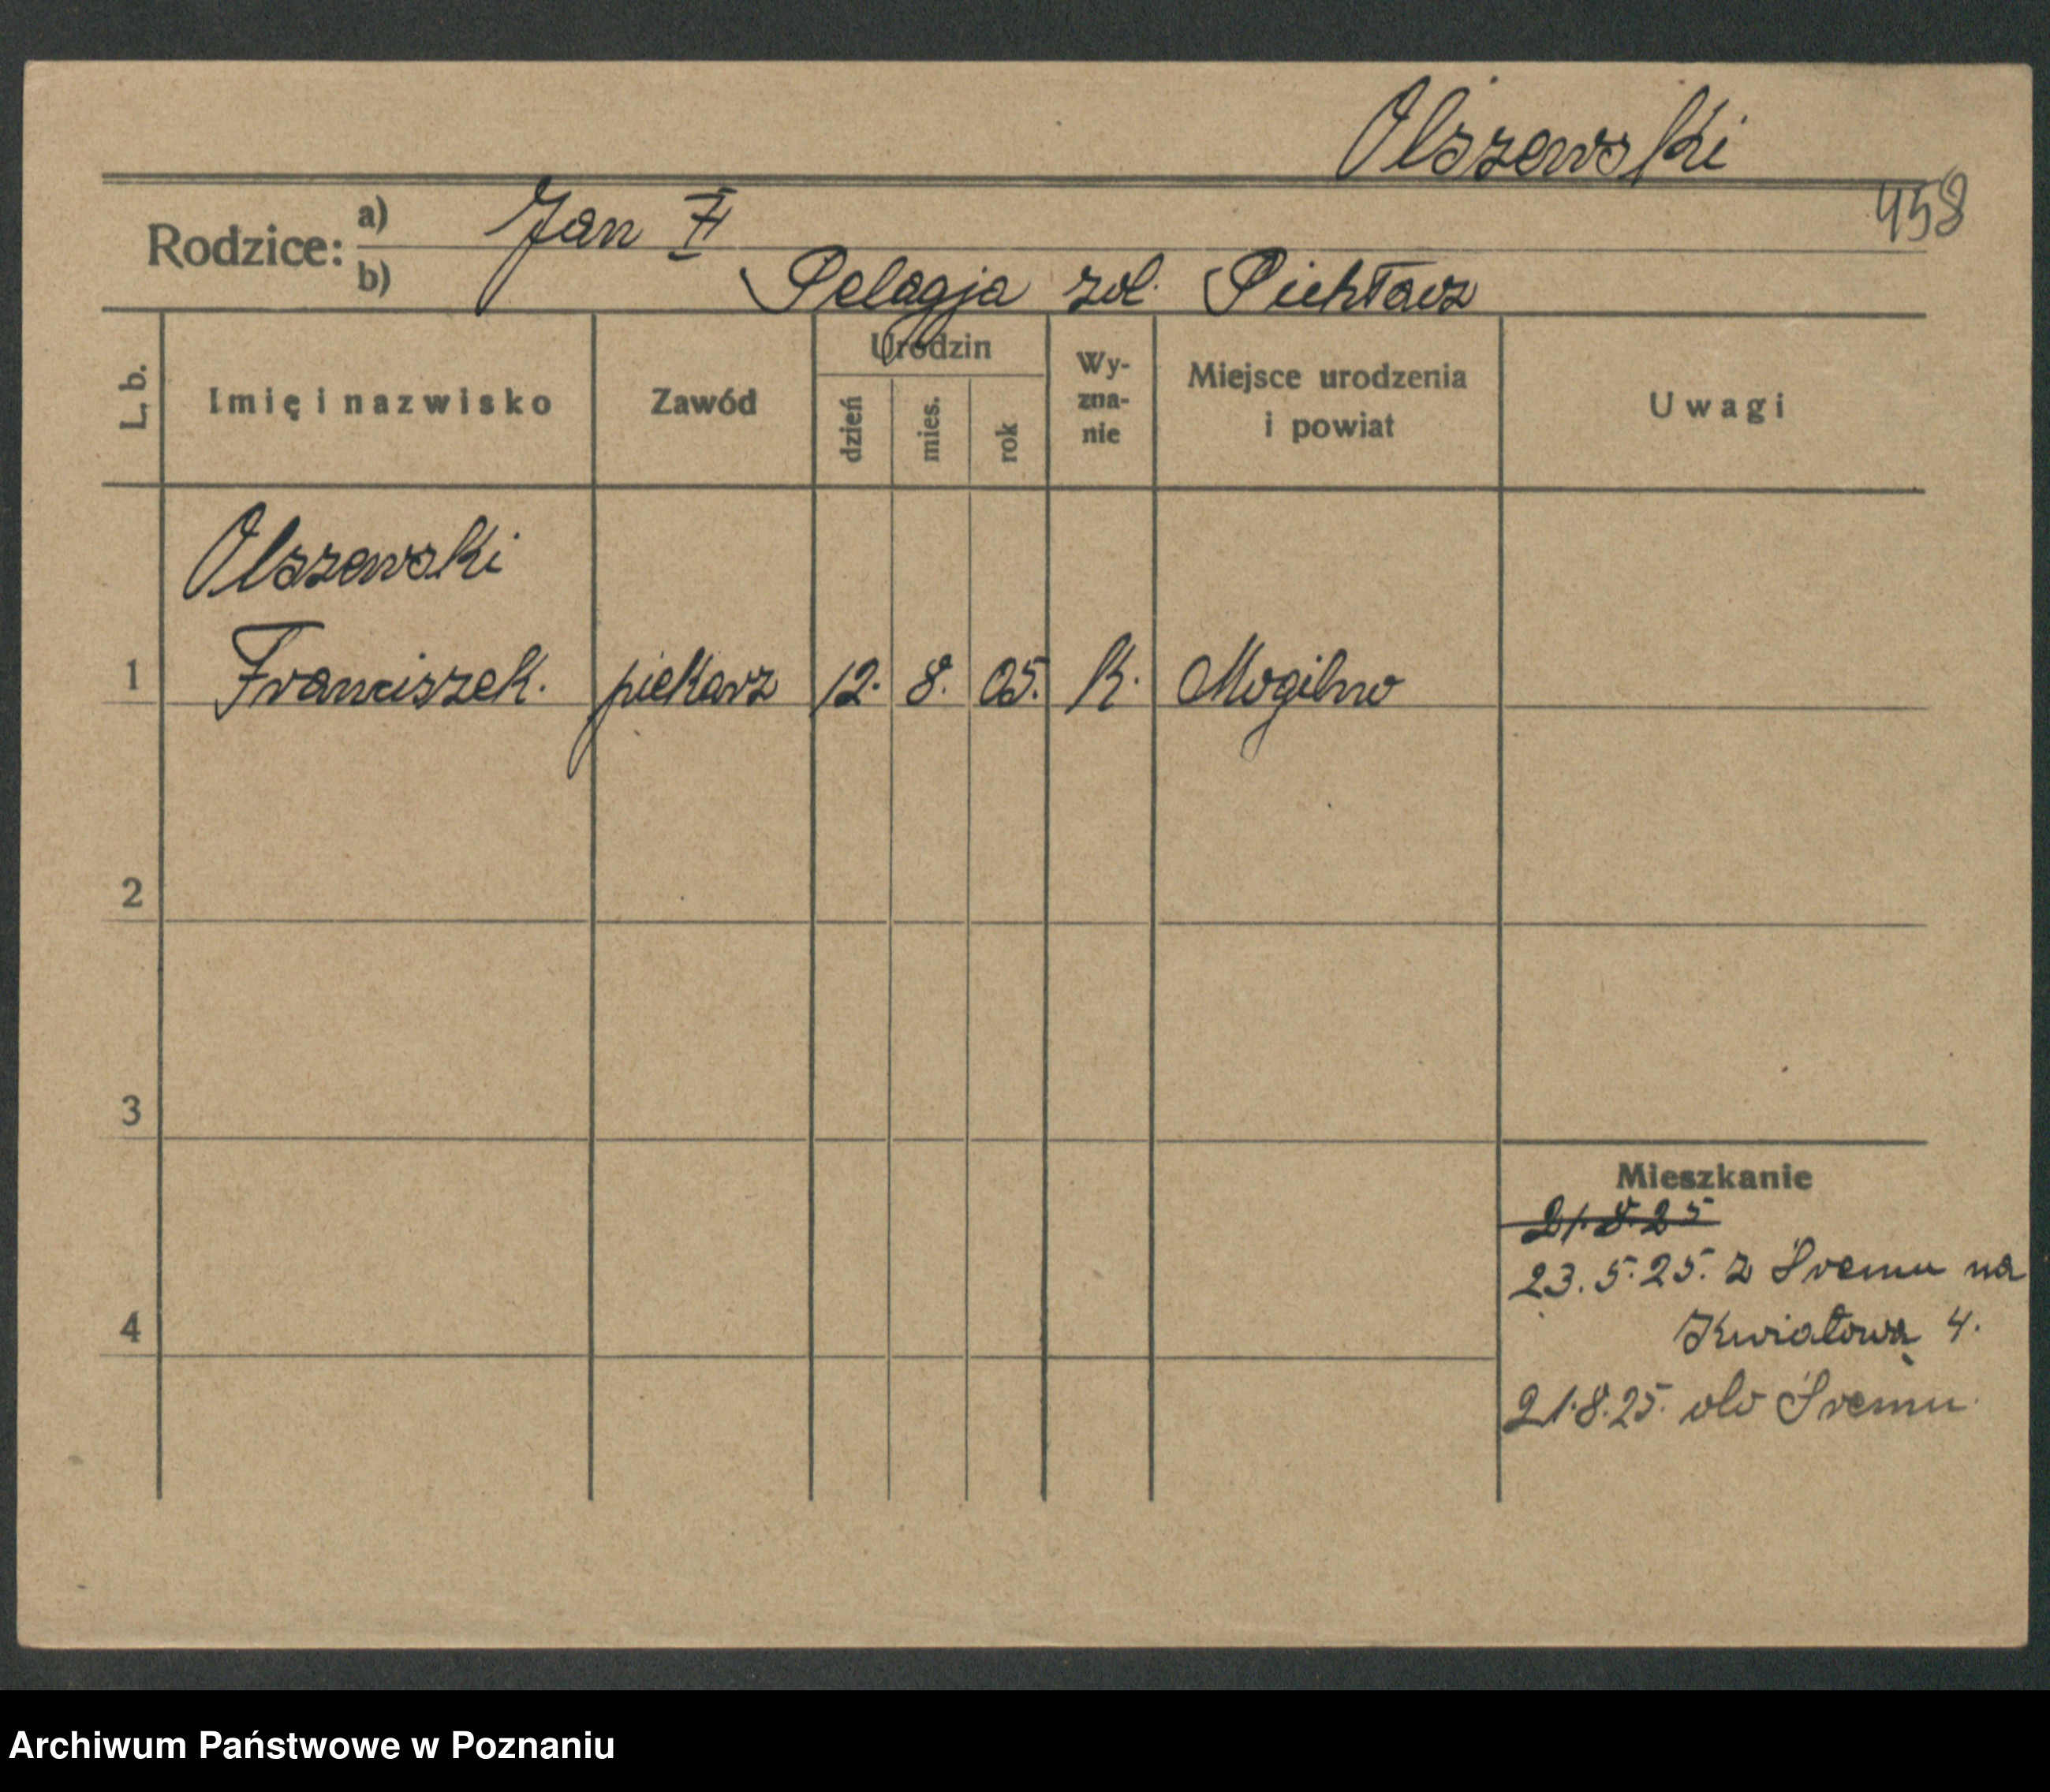 Olszewski
458
Rodzice:
a) Jan II
b) Pelagja zd.
L. b.
Imię i nazwisko
Zawód
Urodzin
dzień
mies.
rok
Wy-
zna-
nie
Miejsce urodzenia
i powiat
Uwagi
Olszewski
1 Franciszek. piekarz 12. 8. 05. K. Mogilno
2
3
Mieszkanie
21.8.25
23.5.25. z Śremu na
4
Kwiatową 4.
21.8.25. do Śremu.
Archiwum Państwowe w Poznaniu